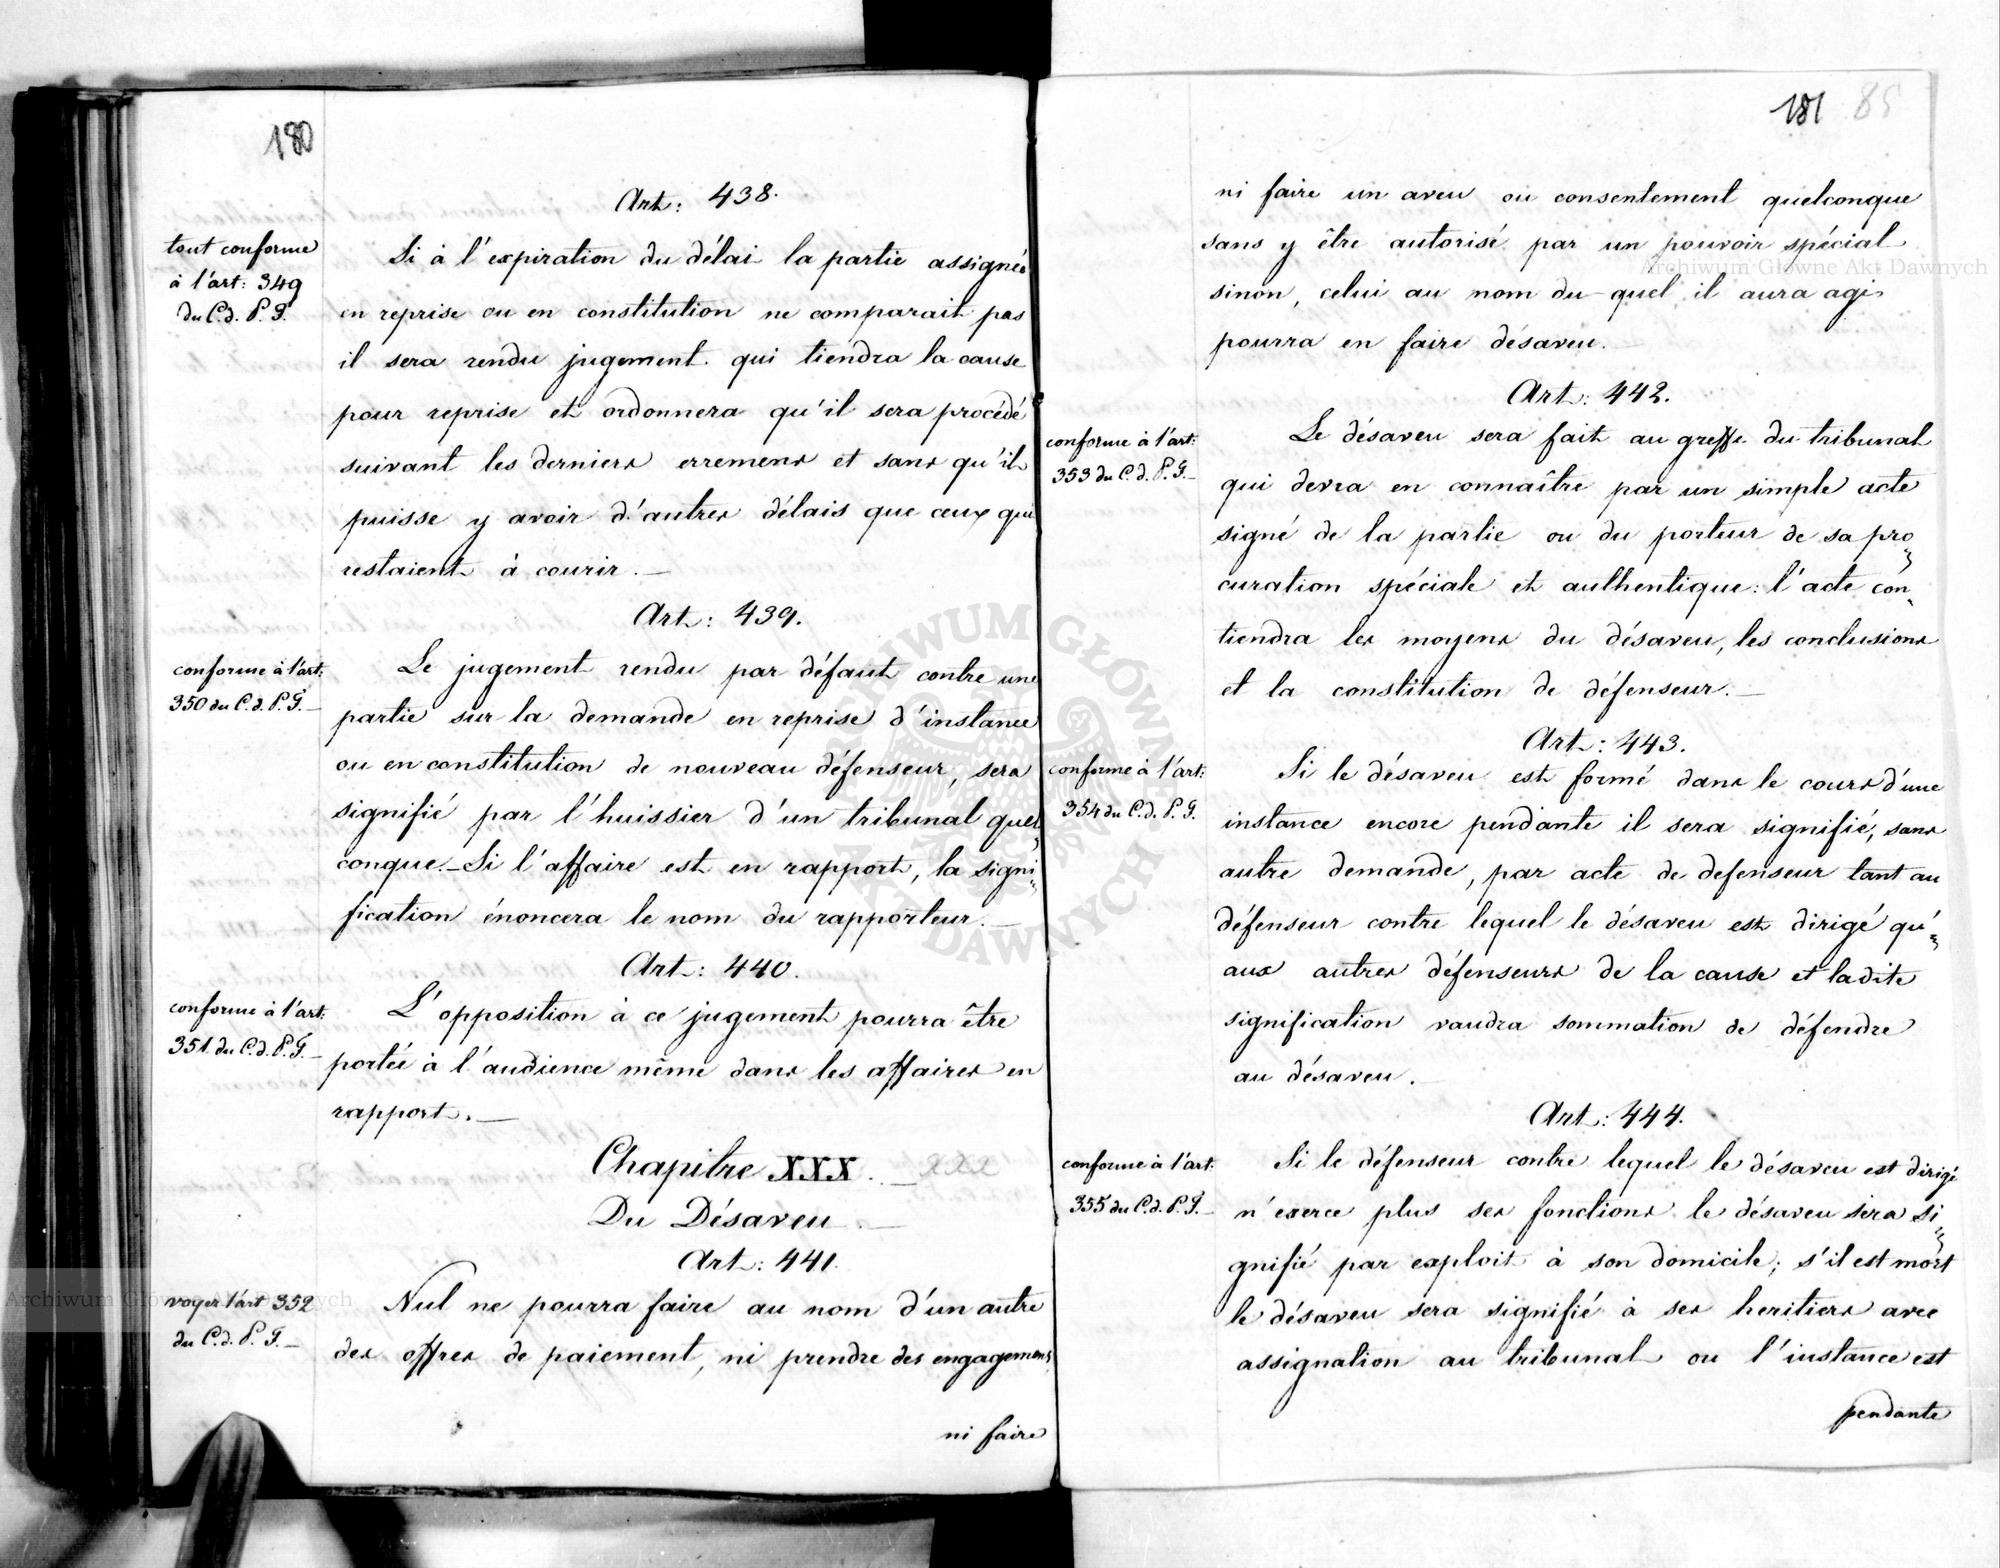 180
Art: 438.
tout conforme
à l'art: 349
du C. d. P. F.
Si à l'expiration du délai la partie assignée
en reprise ou en constitution ne comparait pas
il sera rendu jugement qui tiendra la cause
pour reprise et ordonnera qu'il sera procédé
suivant les derniers erremens et sans qu'il
puisse y avoir d'autres délais que ceux qui
restaient à courir. —
Art: 439.
conforme à l'art:
350 du C. d. P. F. —
Le jugement rendu par défaut contre une
partie sur la demande en reprise d'instance
ou en constitution de nouveau défenseur, sera
signifié par l'huissier d'un tribunal quel
conque. — Si l'affaire est en rapport, la signi
fication énoncera le nom du rapporteur. —
Art: 440.
conforme à l'art:
351 du C. d. P. F. —
L'opposition à ce jugement pourra être
portée à l'audience même dans les affaires en
rapport. —
Chapitre XXX. — XXX
Du Désaveu. —
Art: 441.
voyer l'art 352
du C. d. P. F. —
Nul ne pourra faire au nom d'un autre
des offres de paiement, ni prendre des engagemens
ni faire
181 85
ni faire un aveu ou consentement quelconque
sans y être autorisé par un pouvoir spécial
sinon, celui au nom du-quel il aura agi
pourra en faire désaveu. —
Art: 442.
conforme à l'art:
353 du C. d. P. F. —
Le désaveu sera fait au greffe du tribunal
qui devra en connaître par un simple acte
signé de la partie ou du porteur de sa pro
curation spéciale et authentique: l'acte con
tiendra les moyens du désaveu, les conclusions
et la constitution de défenseur. —
Art: 443.
conforme à l'art:
354 du C. d. P. F.
Si le désaveu est formé dans le cours d'une
instance encore pendante il sera signifié, sans
autre demande, par acte de defenseur tant au
défenseur contre lequel le désaveu est dirigé qu'
aux autres défenseurs de la cause et ladite
signification vaudra sommation de défendre
au désaveu. —
Art: 444.
conforme à l'art:
355 du C. d. P. F. —
Si le défenseur contre lequel le désaveu est dirigé
n'exerce plus ses fonctions le désaveu sera si
gnifié par exploit à son domicile; s'il est mort
le désaveu sera signifié à ses heritiers avec
assignation au tribunal ou l'instance est
pendante
Archiwum Główne Akt Dawnych
Archiwum Główne Akt Dawnych
ARCHIWUM GŁÓWNE AKT DAWNYCH